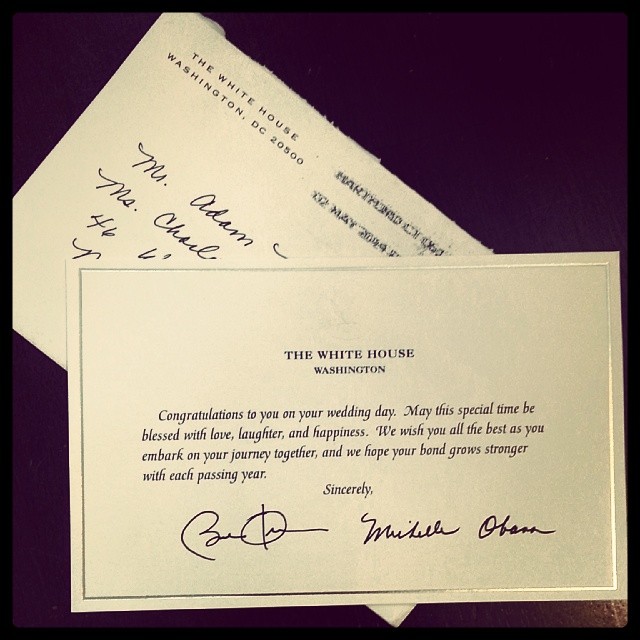 THE WHITE HOUSE
WASHINGTON, DC 20500
HARTFORD CT 061
02 MAY 2014
Mr. Adam
Ms. Charl
46
THE WHITE HOUSE
WASHINGTON
Congratulations to you on your wedding day. May this special time be
blessed with love, laughter, and happiness. We wish you all the best as you
embark on your journey together, and we hope your bond grows stronger
with each passing year.
Sincerely,
Michelle Obama